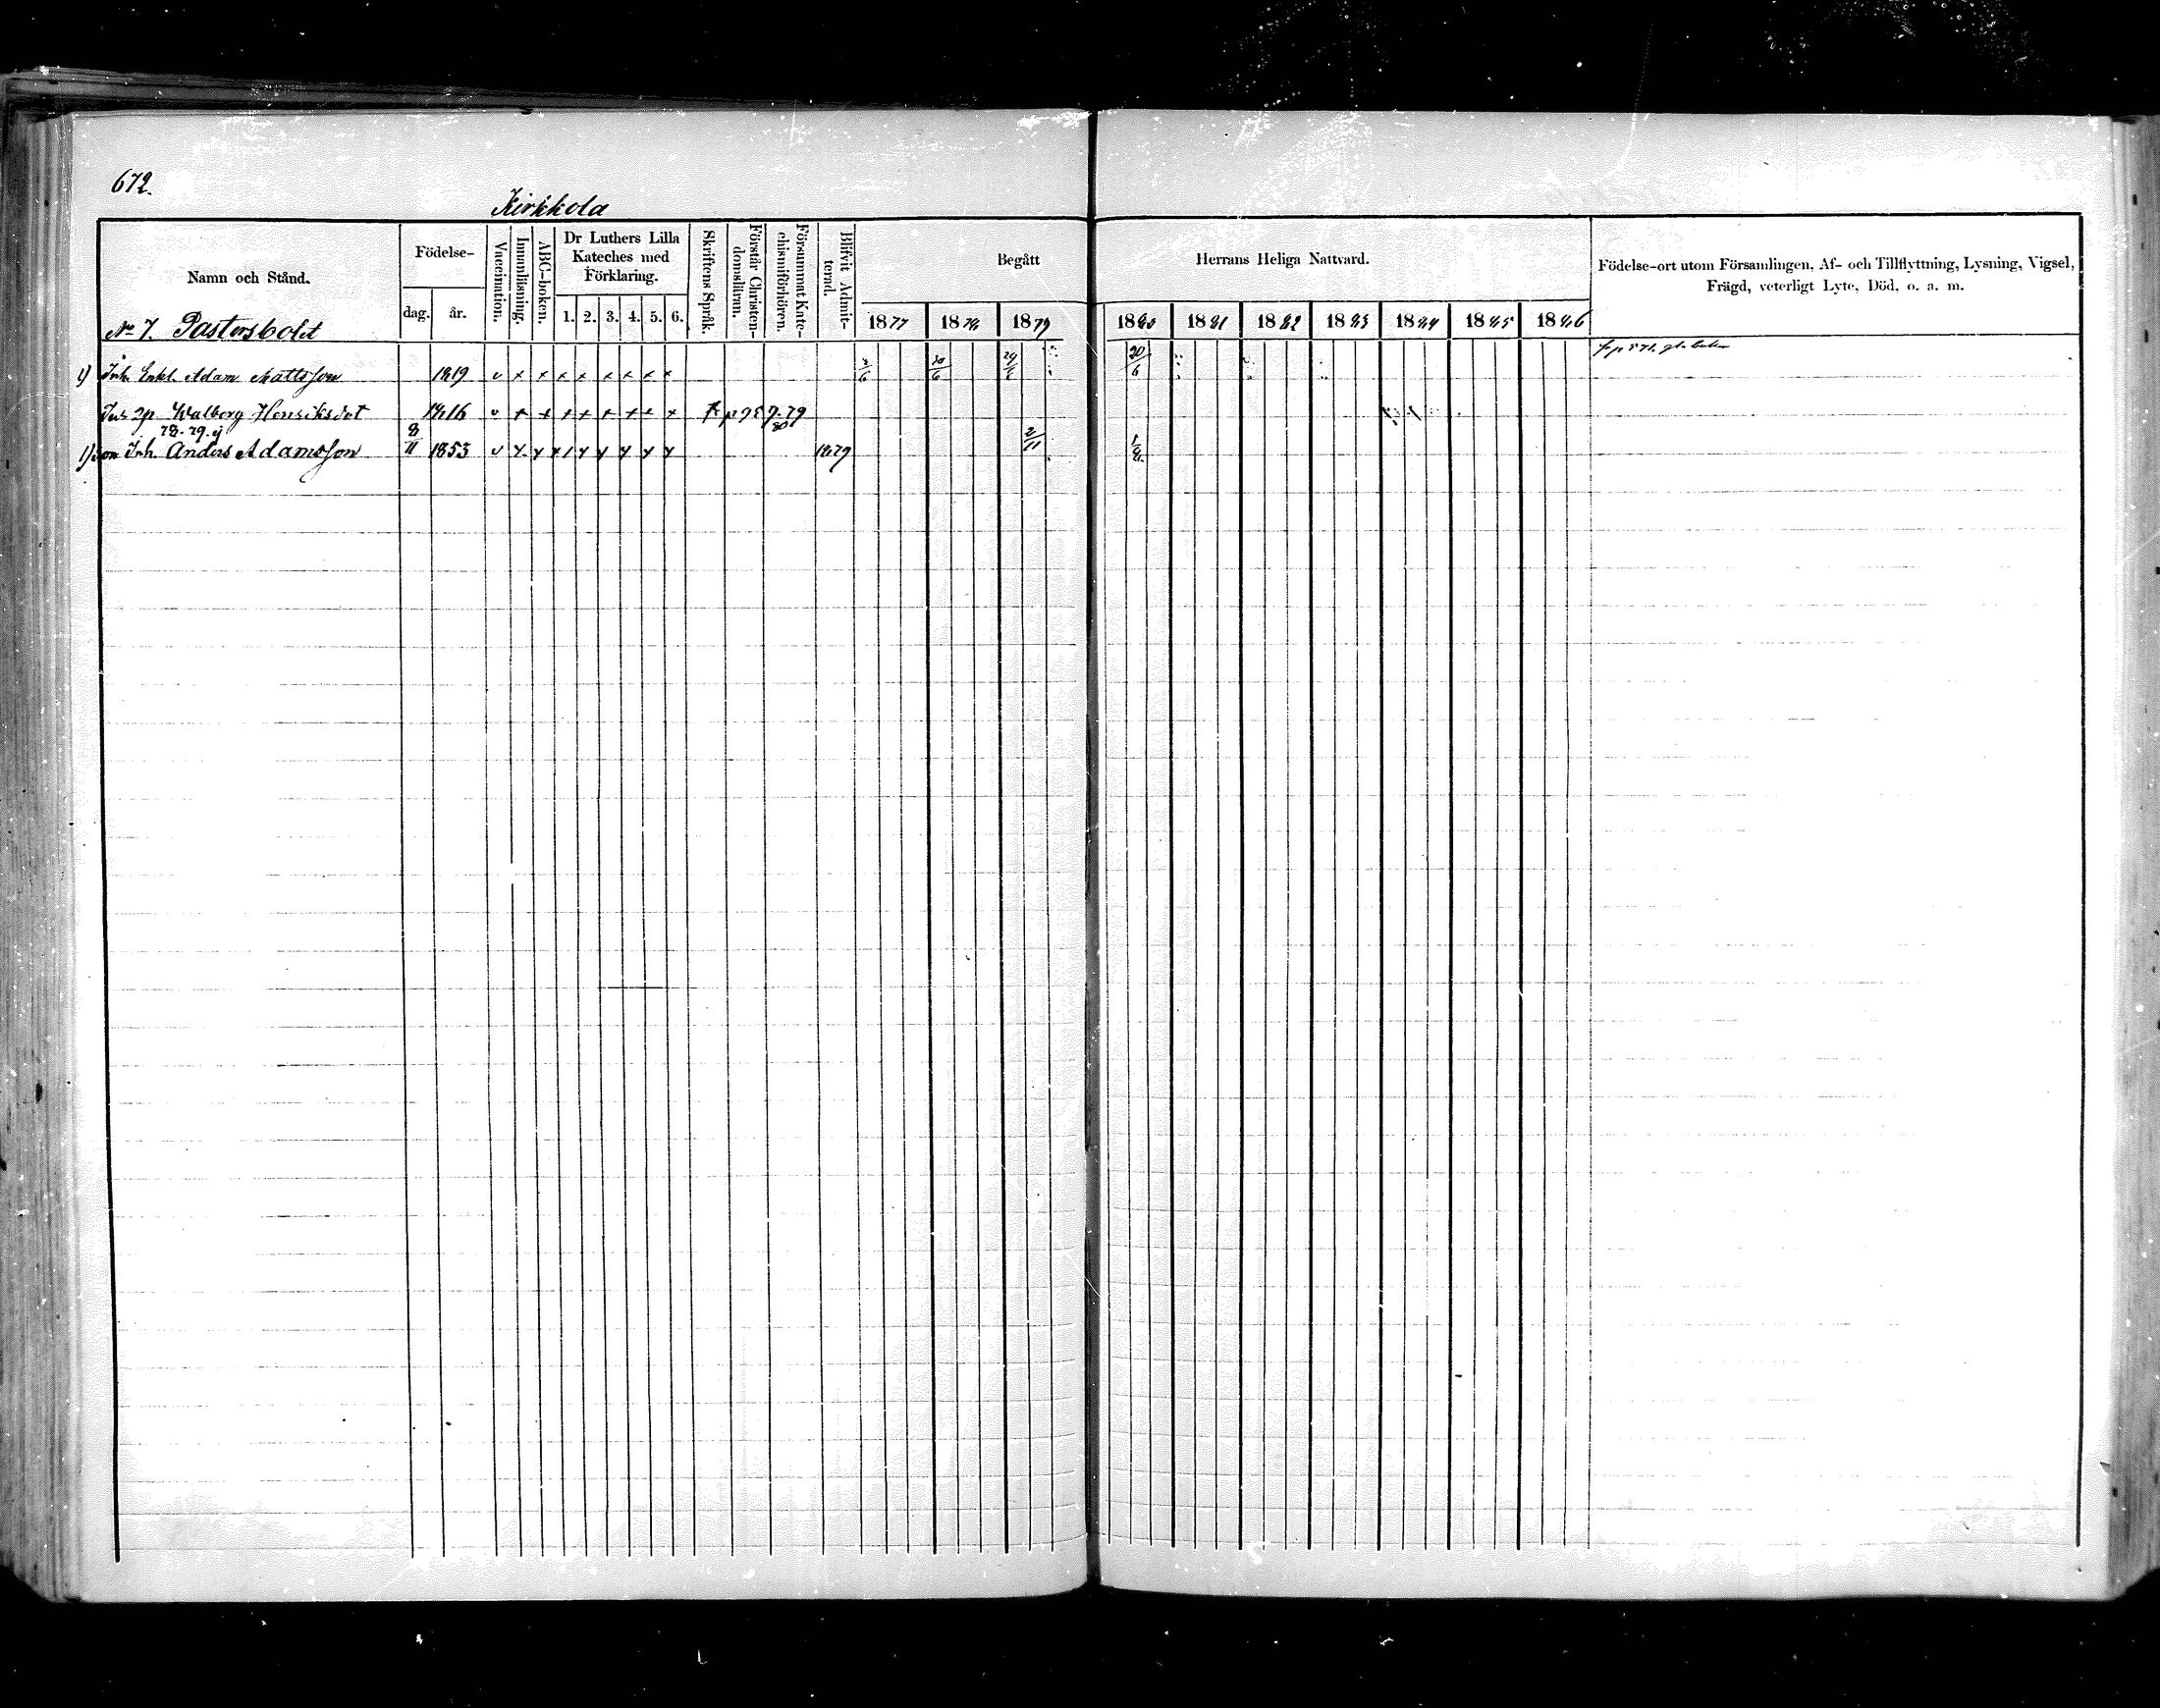 672.
Kirkkola
Namn och Stånd.
Födelse-
dag. år.
Vaccination.
Innanläsning.
ABC-boken.
Dr Luthers Lilla
Kateches med
Förklaring.
1. 2. 3. 4. 5. 6.
Skriftens Språk.
Förstår Christen-
domsläran.
Försummat Kate-
chismiförhören.
Blifvit Admit-
terad.
Begått Herrans Heliga Nattvard.
1877 1878 1879 1880 1881 1882 1883 1884 1885 1886
Födelse-ort utom Församlingen, Af- och Tillflyttning, Lysning, Vigsel,
Frägd, veterligt Lyte, Död, o. a. m.
No 7. Pastorsbolet
1) Inh. Enkl. Adam Mattsson 1819 v x x x x x x x x 6 20/6 20/6
Inh. Walborg Henriksdot 1816 v x x x x x x x x 79 80
78. 79. ej
1) son Inh. Anders Adamsson 8/11 1853 v x x x x x x x x 1879 2/11 1/8